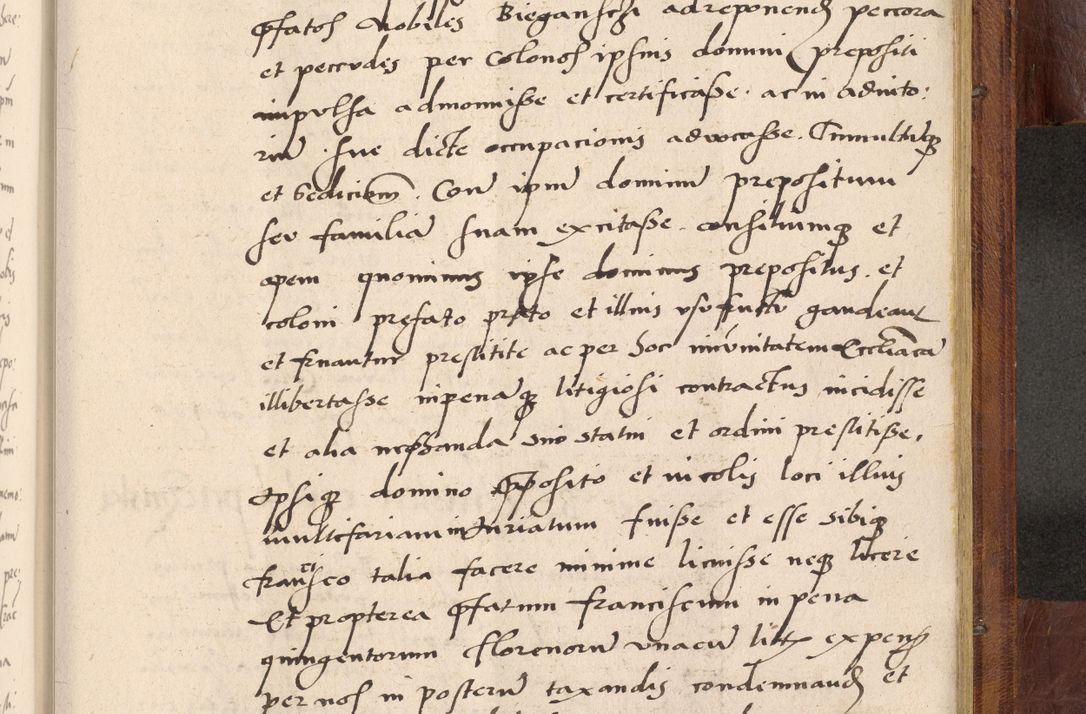 p̄fatos Nobiles Bieganschi ad reponend peccora
et peccudes per Colonos ipsius domini prepositi
impulsa admonuisse et certificasse. ac in adiuto:
riū sue dicte occupacionis advocasse. Tumultūq
et Sedicionem. Con̄ ipm̄ dominū prepositum
seu familiā suam excitasse. consiliumq et
opem quominus ipse dominus prepositus. et
coloni prefato prato et illius usufructu gaudeant
et fruantur prestitite ac per hoc
illibertasse inpenāq litigiosi contractus incidisse
et alia suo statui et ordini prestitisse.
Ipsiq domino p̄posito et incolis loci illius
multifariam iniuriatum fuisse et esse sibiq
francisco talia facere minime licuisse neq licere
Et propterea p̄fatum franciscum in pena
quingentorum florenorū unacū litis expens
per nos in posterū taxandis condemnand et